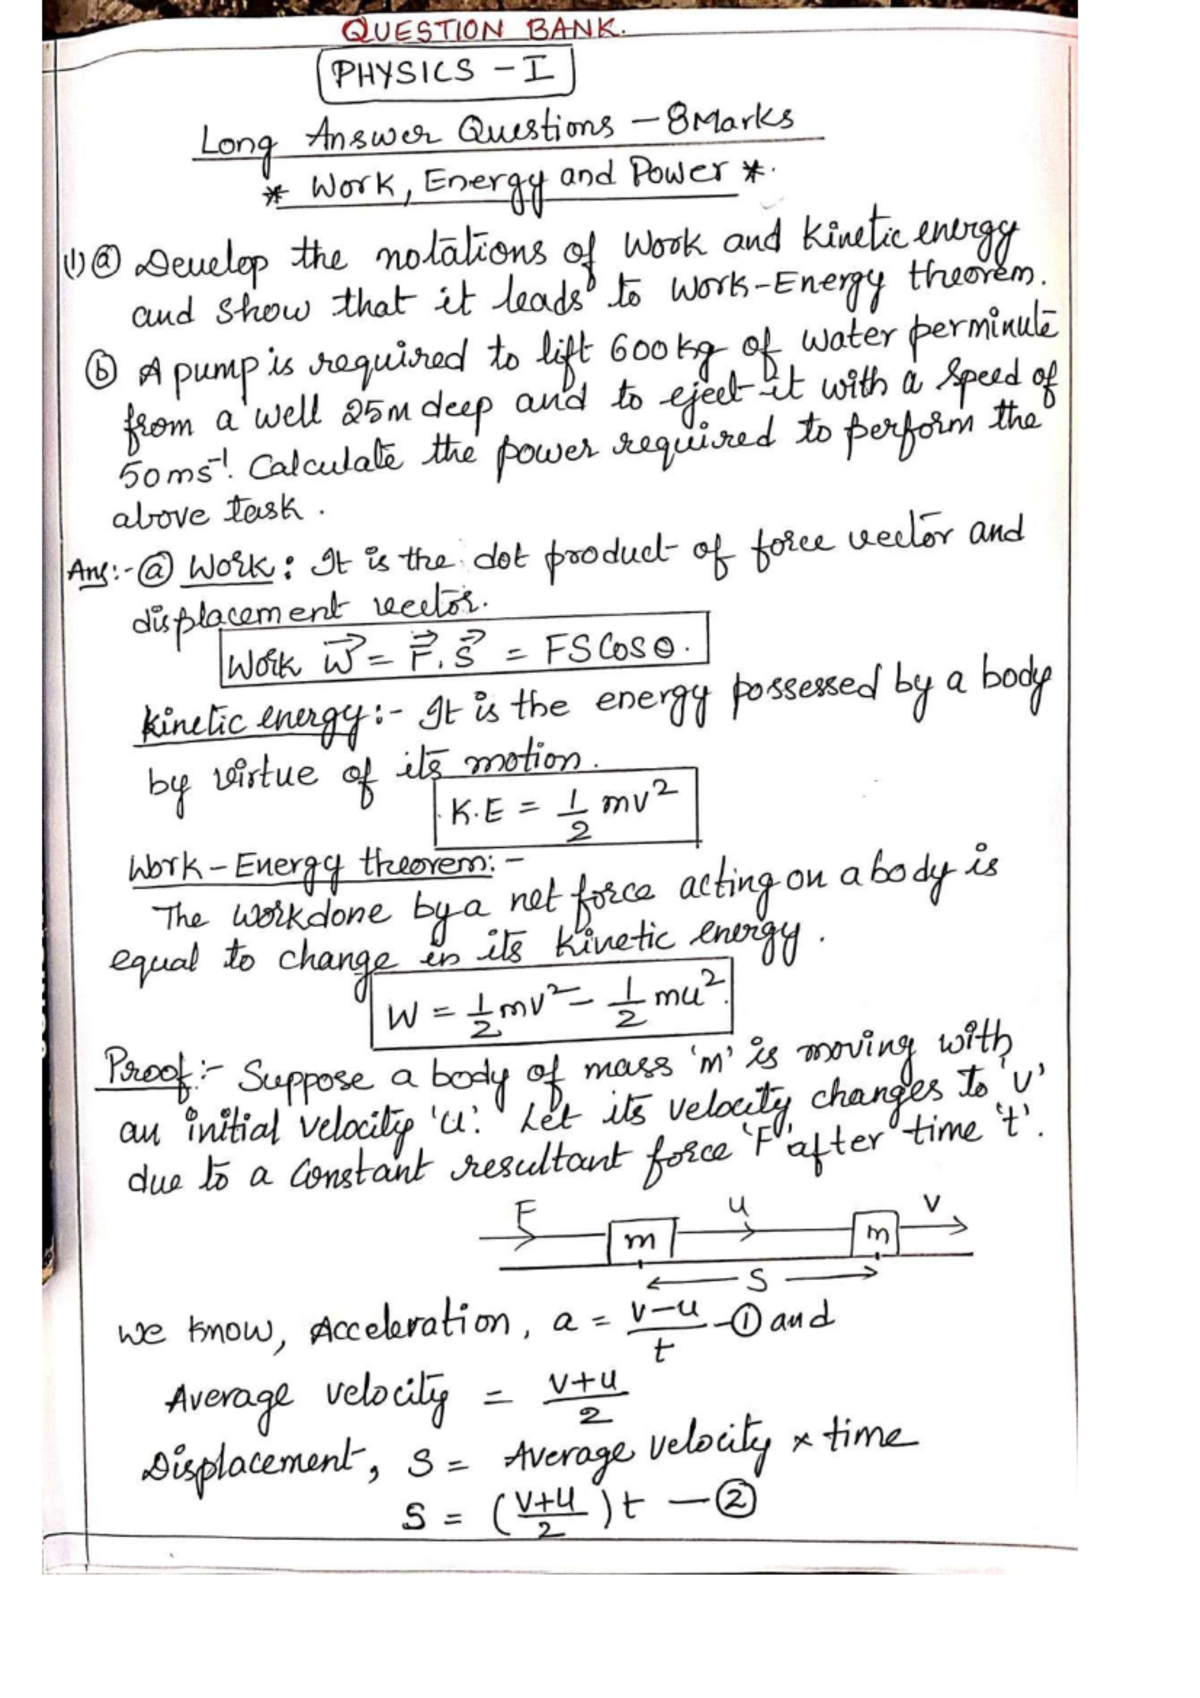 QUESTION BANK.
PHYSICS - I
Long Answer Questions - 8Marks
* Work, Energy and Power *.
(1) ⓐ Develop the notations of Work and Kinetic energy
and show that it leads to Work-Energy theorem.
ⓑ A pump is required to lift 600kg of water perminute
from a well 25m deep and to eject it with a speed of
50ms⁻¹. Calculate the power required to perform the
above task.
Ans:- ⓐ Work: It is the dot product of force vector and
displacement vector.
Work W⃗ = F⃗.S⃗ = FS Cos θ.
Kinetic energy:- It is the energy possessed by a body
by virtue of its motion.
K.E = 1/2 mv²
Work-Energy theorem:-
The workdone by a net force acting on a body is
equal to change in its Kinetic energy.
W = 1/2 mv² - 1/2 mu².
Proof:- Suppose a body of mass 'm' is moving with
an initial velocity 'u'. Let its velocity changes to 'v'
due to a constant resultant force 'F' after time 't'.
F u v
m m
S
we know, Acceleration, a = v-u/t -① and
Average velocity = v+u/2
Displacement, S = Average velocity × time
S = (v+u/2)t -②